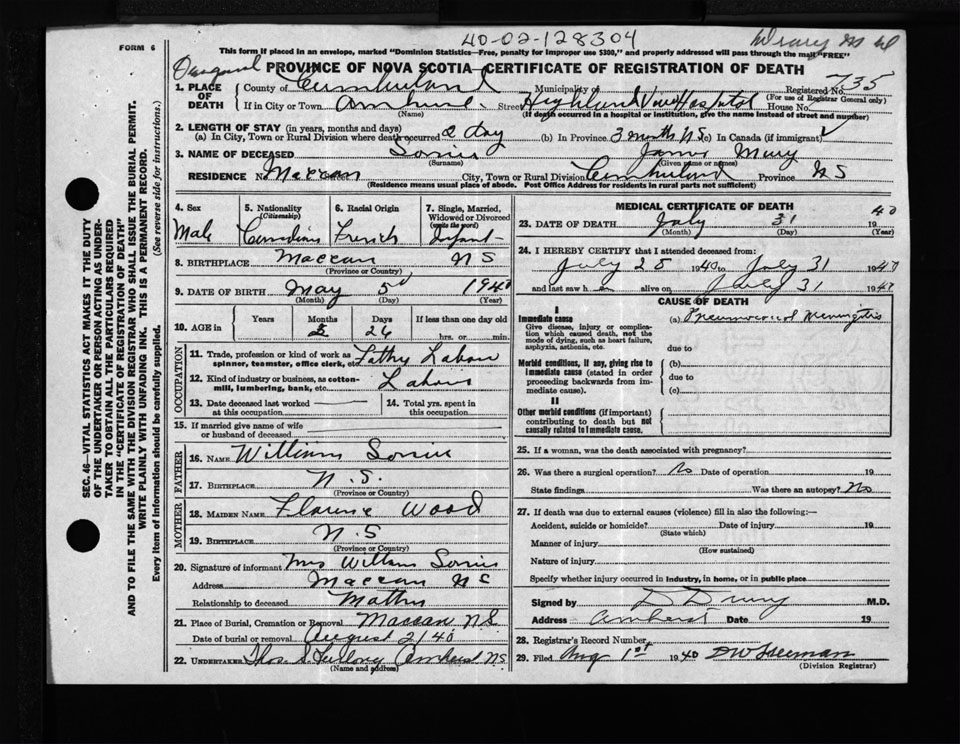 40-02-128304
FORM 6
This form if placed in an envelope, marked "Dominion Statistics—Free, penalty for improper use $300," and properly addressed will pass through the mail "FREE"
PROVINCE OF NOVA SCOTIA—CERTIFICATE OF REGISTRATION OF DEATH
1. PLACE OF DEATH County of Cumberland Municipality of Registered No. 735
(For use of Registrar General only)
If in City or Town Amherst Street Highland View Hospital House No.
(Name) (If death occurred in a hospital or institution, give the name instead of street and number)
2. LENGTH OF STAY (in years, months and days)
(a) In City, Town or Rural Division where death occurred 2 day (b) In Province 3 months NS (c) In Canada (if immigrant)
3. NAME OF DECEASED James
(Surname) (Given name or names)
RESIDENCE No. Maccan Street City, Town or Rural Division Cumberland Province NS
(Residence means usual place of abode. Post Office Address for residents in rural parts not sufficient)
4. Sex Male
5. Nationality (Citizenship) Canadian
6. Racial Origin French
7. Single, Married, Widowed or Divorced (write the word) Infant
8. BIRTHPLACE Maccan NS
(Province or Country)
9. DATE OF BIRTH May 5 1940
(Month) (Day) (Year)
10. AGE in Years Months 2 Days 26 If less than one day old
hrs. or min.
OCCUPATION
11. Trade, profession or kind of work as spinner, teamster, office clerk, etc. Labour
12. Kind of industry or business, as cotton-mill, lumbering, bank, etc. Labour
13. Date deceased last worked at this occupation
14. Total yrs. spent in this occupation
15. If married give name of wife or husband of deceased
FATHER
16. NAME William
17. BIRTHPLACE N.S.
(Province or Country)
MOTHER
18. MAIDEN NAME Florence Wood
19. BIRTHPLACE N.S
(Province or Country)
20. Signature of informant Mrs William
Address Maccan NS
Relationship to deceased Mother
21. Place of Burial, Cremation or Removal Maccan NS
Date of burial or removal August 2/40
22. UNDERTAKER Thos. S Furlong Amherst NS
(Name and address)
MEDICAL CERTIFICATE OF DEATH
23. DATE OF DEATH July 31 1940
(Month) (Day) (Year)
24. I HEREBY CERTIFY that I attended deceased from:
July 28 1940 to July 31 1940
and last saw h alive on July 31 1940
CAUSE OF DEATH
I
Immediate cause (a) Pneumococcal Meningitis
Give disease, injury or complication which caused death, not the mode of dying, such as heart failure, asphyxia, asthenia, etc.
due to
Morbid conditions, if any, giving rise to immediate cause (stated in order proceeding backwards from immediate cause).
(b)
due to
(c)
II
Other morbid conditions (if important) contributing to death but not causally related to immediate cause.
25. If a woman, was the death associated with pregnancy?
26. Was there a surgical operation? No Date of operation 19
State findings Was there an autopsy? No
27. If death was due to external causes (violence) fill in also the following:—
Accident, suicide or homicide? Date of injury 19
(State which)
Manner of injury
(How sustained)
Nature of injury
Specify whether injury occurred in industry, in home, or in public place
Signed by D Drury M.D.
Address Amherst Date 19
28. Registrar's Record Number
29. Filed Aug 1st 1940 DW Freeman
(Division Registrar)
SEC. 46—VITAL STATISTICS ACT MAKES IT THE DUTY
OF THE UNDERTAKER OR PERSON ACTING AS UNDER-
TAKER TO OBTAIN ALL THE PARTICULARS REQUIRED
IN THE "CERTIFICATE OF REGISTRATION OF DEATH"
AND TO FILE THE SAME WITH THE DIVISION REGISTRAR WHO SHALL ISSUE THE BURIAL PERMIT.
WRITE PLAINLY WITH UNFADING INK. THIS IS A PERMANENT RECORD.
Every item of information should be carefully supplied. (See reverse side for instructions.)